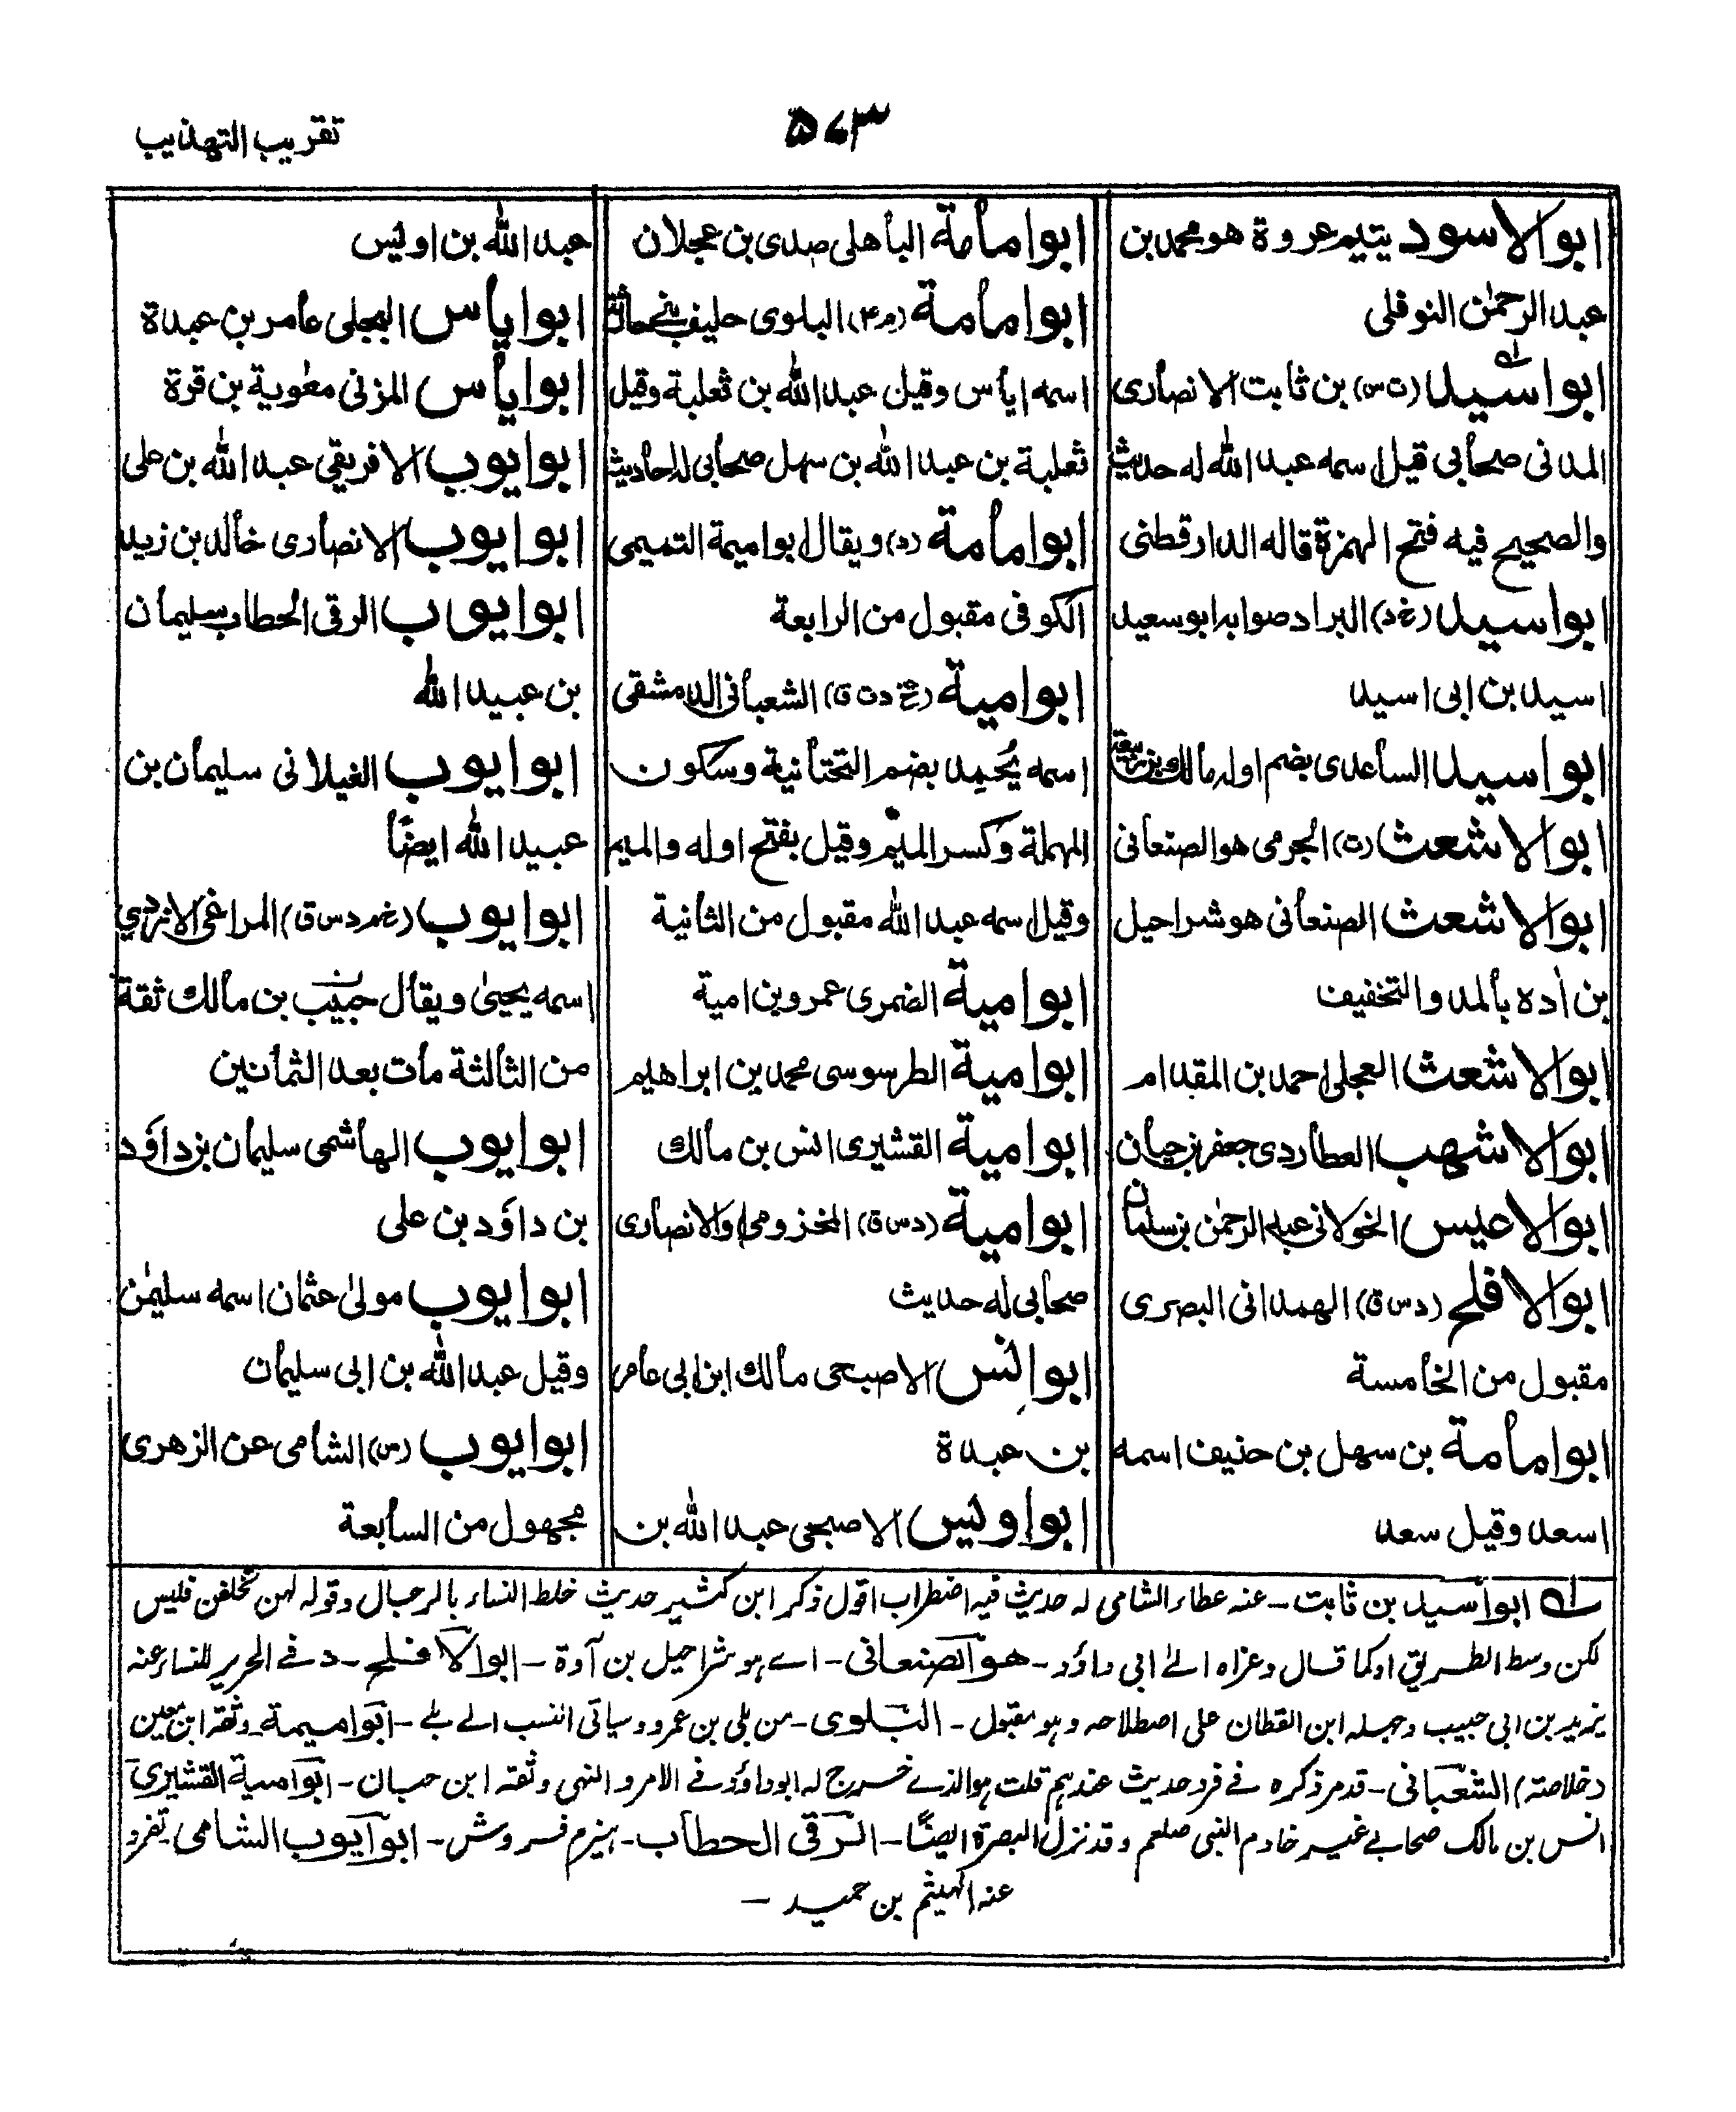 تقريب التهذيب
۵۷۳
ابوالاسود يتيم عروة هو محمد بن
عبد الرحمٰن النوفلى
ابواسيد (ت س) بن ثابت الانصارى
المدنى صحابى قيل اسمه عبد الله له حديث
والصحيح فيه فتح الهمزة قاله الدارقطنى
ابواسيد (خ د) البراد صوابه ابوسعيد
اسيد بن ابى اسيد
ابواسيد الساعدى بضم اوله مالك بن ربيعة
ابوالاشعث (ت) الجرمى هو الصنعانى
ابوالاشعث الصنعانى هو شراحيل
بن اٰده بالمد والتخفيف
ابوالاشعث العجلى احمد بن المقدام
ابوالاشهب العطاردى جعفر بن حيان
ابوالاعيس الخولانى عبد الرحمٰن بن سلمان
ابوالافلح (د س ق) الهمدانى البصرى
مقبول من الخامسة
ابوامامة بن سهل بن حنيف اسمه
اسعد وقيل سعد
ابوامامة الباهلى صدى بن عجلان
ابوامامة (م۴) البلوى حليف بنى حارثة
اسمه اياس وقيل عبد الله بن ثعلبة وقيل
ثعلبة بن عبد الله بن سهل صحابى له احاديث
ابوامامة (د) ويقال ابواميمة التميمى
الكوفى مقبول من الرابعة
ابوامية (عخ د ت ق) الشعبانى الدمشقى
اسمه يُحمِد بضم التحتانية وسكون
المهملة وكسر الميم وقيل بفتح اوله والميم
وقيل اسمه عبد الله مقبول من الثانية
ابوامية الضمرى عمرو بن امية
ابوامية الطرسوسى محمد بن ابراهيم
ابوامية القشيرى انس بن مالك
ابوامية (د س ق) المخزومى او الانصارى
صحابى له حديث
ابوانس الاصبحى مالك ابن ابى عامر
بن عبدة
ابواويس الاصبحى عبد الله بن
عبد الله بن اويس
ابواياس البجلى عامر بن عبدة
ابواياس المزنى معٰوية بن قرة
ابوايوب الافريقى عبد الله بن على
ابوايوب الانصارى خالد بن زيد
ابوايوب الرقى الحطاب سليمان
بن عبيد الله
ابوايوب الغيلانى سليمان بن
عبيد الله ايضًا
ابوايوب (خ م د س ق) المراغى الازدي
اسمه يحيىٰ ويقال حبيب بن مالك ثقة
من الثالثة مات بعد الثمانين
ابوايوب الهاشمى سليمان بن داؤد
بن داؤد بن على
ابوايوب مولىٰ عثمان اسمه سليمٰن
وقيل عبد الله بن ابى سليمان
ابوايوب (س) الشامى عن الزهرى
مجهول من السابعة
ابو أسيد بن ثابت - عنه عطاء الشامى له حديث فيه اضطراب اقول ذكر ابن كثير حديث خلط النساء بالرجال وقوله لهن تخلفن فليس
لكن وسط الطريق او كما قال وعزاه الے ابى داؤد - هو الصنعانى - اے ہو شراحيل بن آدة - ابوالافلح - د فے الحرير للنساء عنه
يزيد بن ابى حبيب وجهله ابن القطان على اصطلاحه وہو مقبول - البلوى - من بلى بن عمرو وسياتى النسب الے بلے - ابواميمة وثقه ابن معين
(خلاصه) الشعبانى - قد مر ذكره فے فرد حديث عندہم قلت ہو الذے خرج له ابوداؤد فے الامر والنهى وثقه ابن حبان - ابوامية القشيرى
انس بن مالك صحابے غير خادم النبى صلعم وقد نزل البصرة ايضًا - الرقى الحطاب - ہيزم فروش - ابوايوب الشامى - تفرد
عنه الهيثم بن حميد -